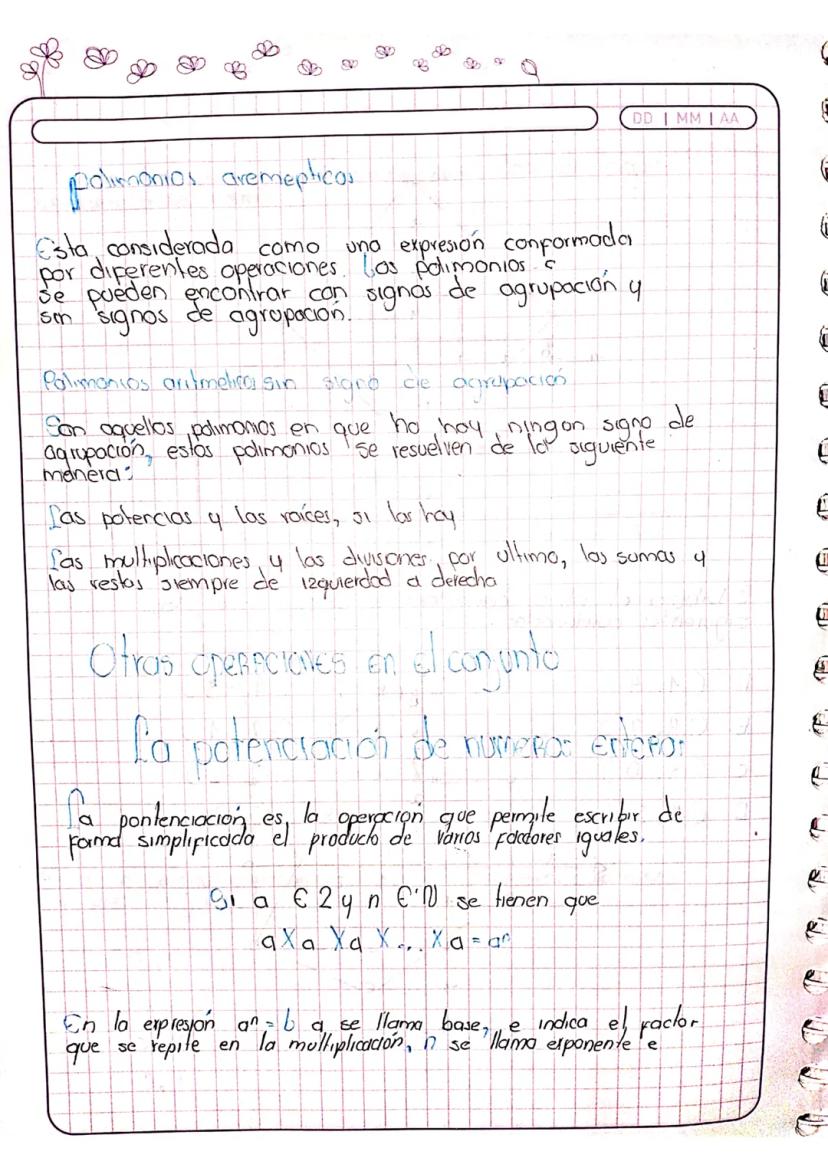 DD | MM | AA
polimonios aremepticos
Esta considerada como una expresión conformada
por diferentes operaciones. Los polimonios
se pueden encontrar con signos de agrupación y
sin signos de agrupación.
Polimonios aritmeticos sin signo de agrupación
Son aquellos polimonios en que no hay ningun signo de
agrupación, estos polimonios se resuelven de la siguiente
manera:
Las potencias y las raíces, si las hay
Las multiplicaciones y las divisones, por ultimo, las sumas y
las restas siempre de izquierdad a derecha
Otras operaciones en el conjunto
La potenciación de numeros enteros
La pontenciación es, la operación que permite escribir de
forma simplificada el producto de varios factores iguales.
Si a € 2 y n € N se tienen que
a X a X a X ... X a = aⁿ
En la expresión aⁿ = b a, se llama base, e indica el factor
que se repite en la multiplicación, n se llama exponente e